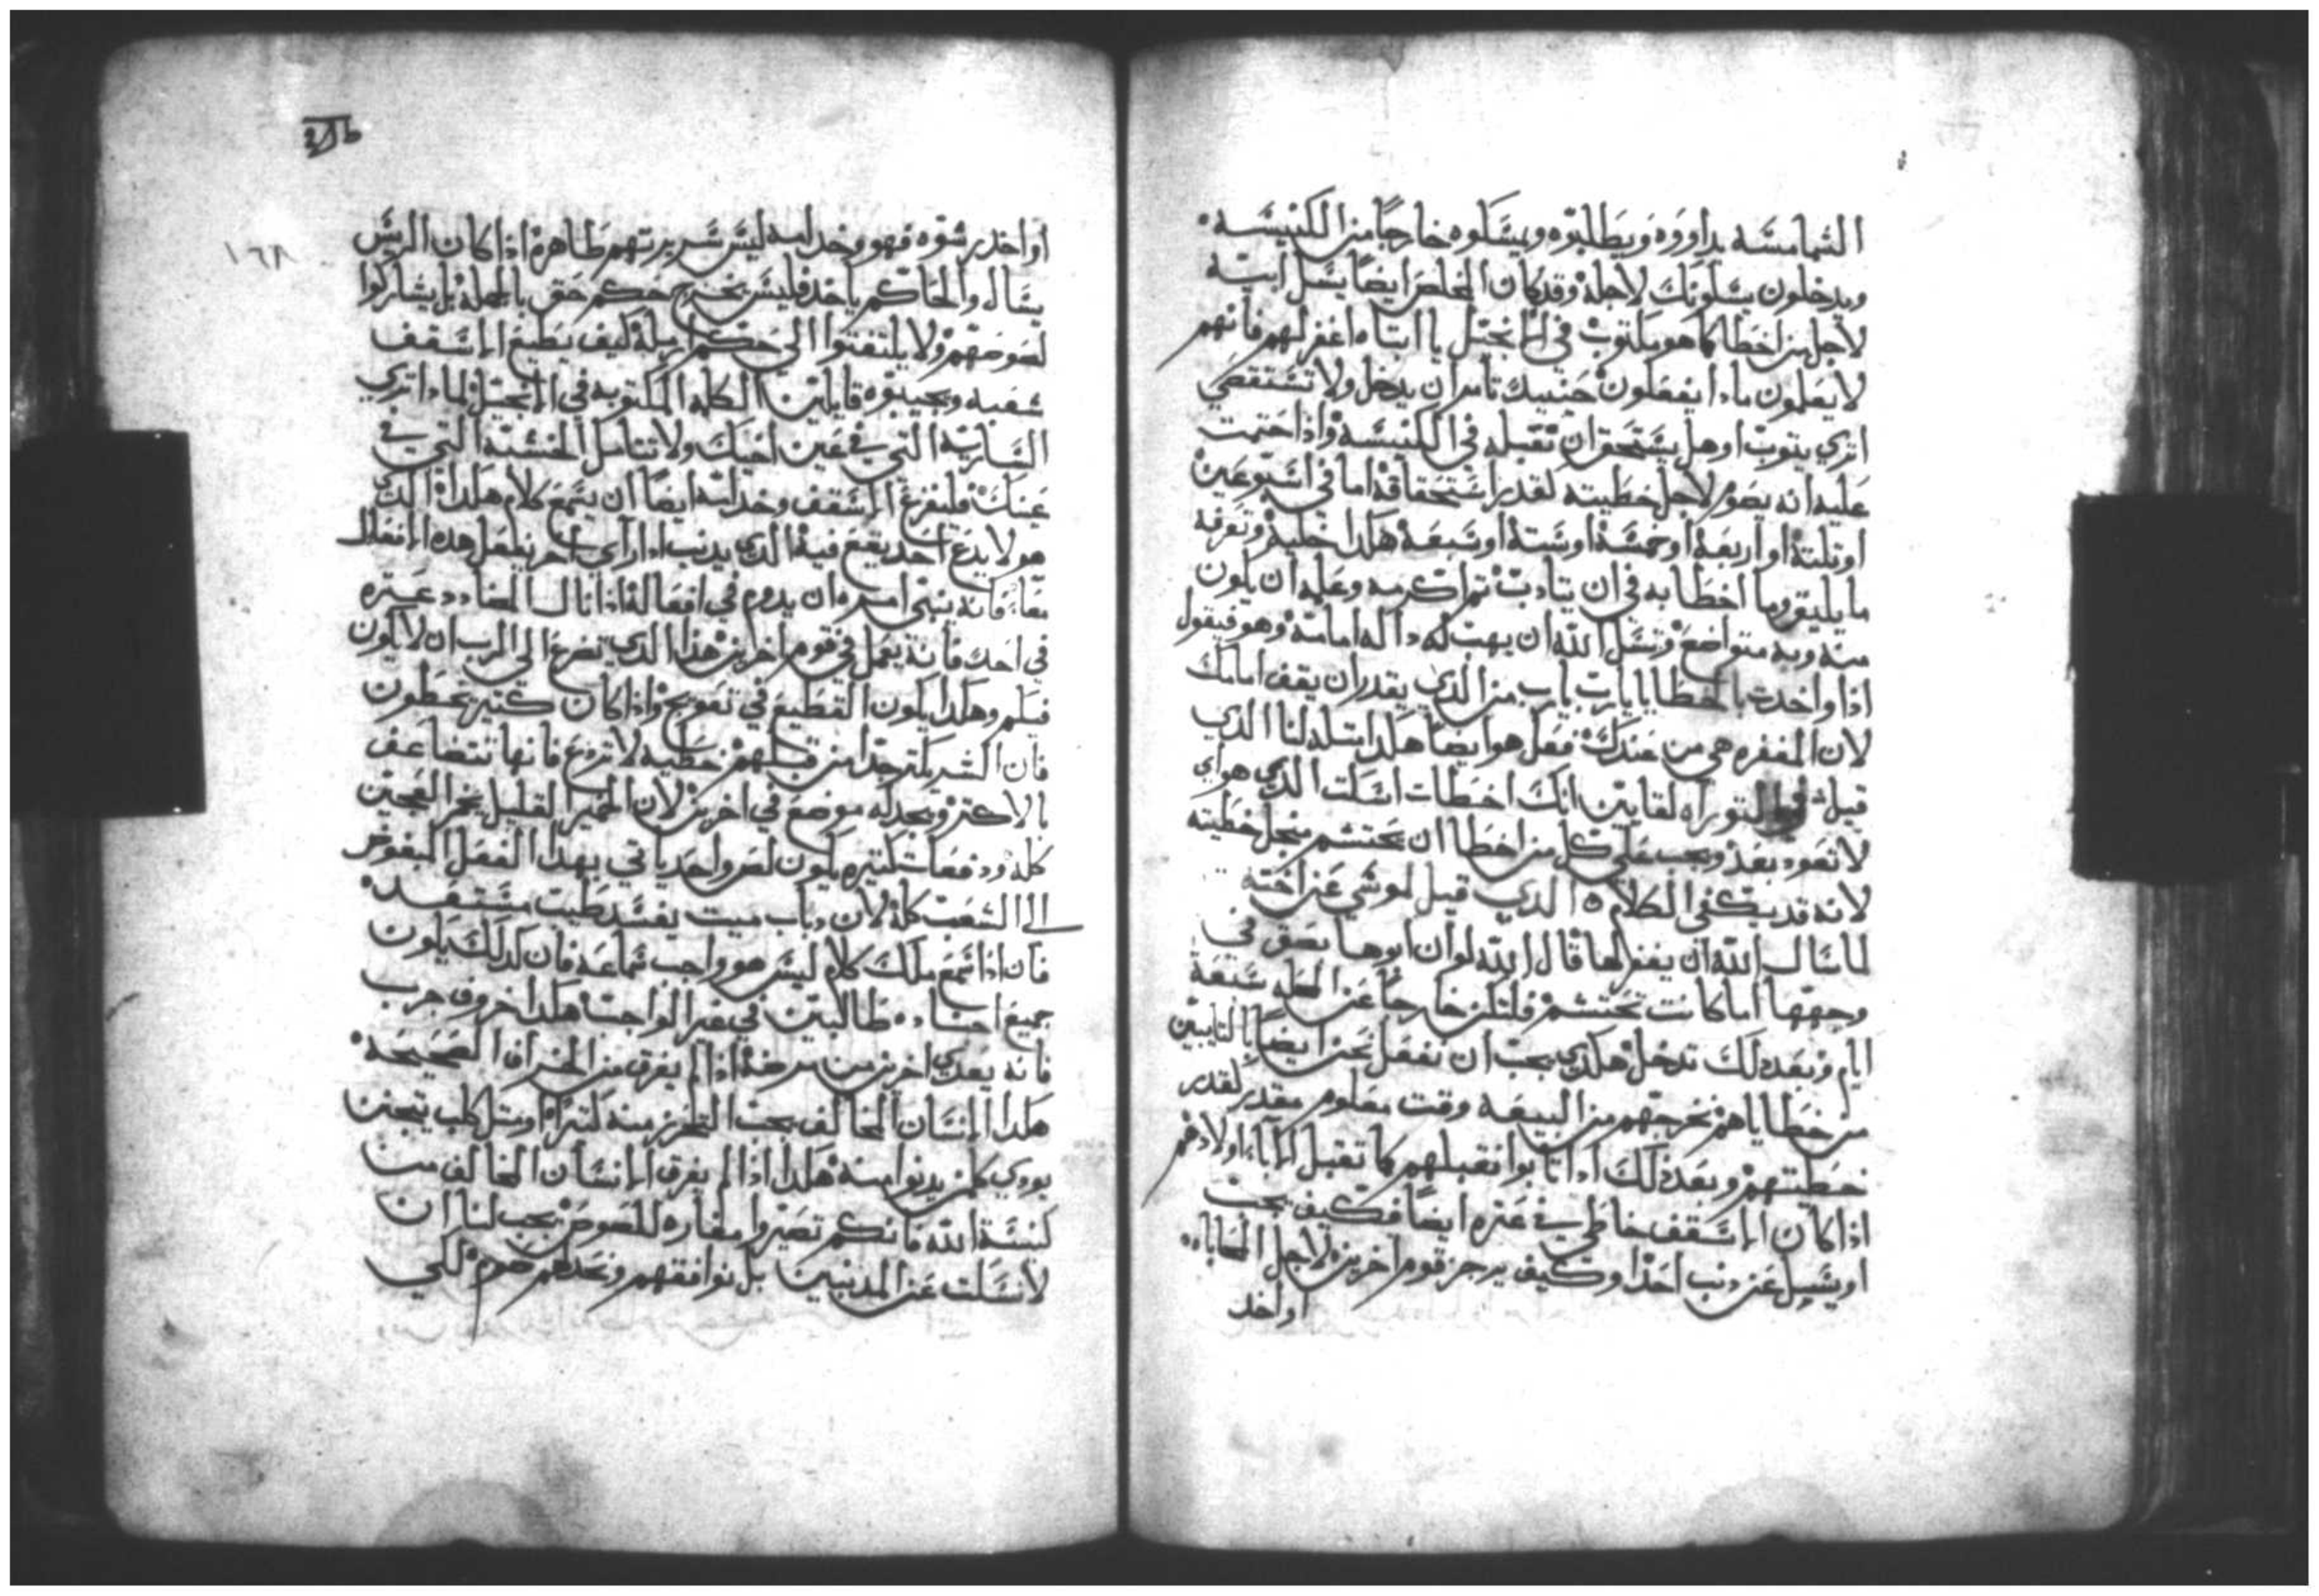 الشمامسه يداووه ويطلبوه ويمسكوه خارجًا من الكنيسه.
ويدخلون يسلونك لاجله وقد كان المخلص ايضًا يسل ابيه
لاجل من اخطا كما هو مكتوب في الانجيل يا ابتاه اغفر لهم فانهم
لا يعلمون ماذا يفعلون حنيىك تامر ان يدخل ولا تستقصي
اتري يتوب او هل يستحق ان تقبله في الكنيسه واذا ختمت
عليه انه يصوم لاجل خطيته لقدر استحقاقه اما في اسبوعين
او ثلثة او اربعة او خمسة او ستة او سبعة هكدا خليه وتعرفه
ما يليق وما اخطا به في ان يتادب تم اكرمه وعلمه ان يكون
منه وبه متواضع وتسل الله ان يهب له داله امامه وهو فيقول
اذا واخدت بالخطايا يارب يارب من الدي يقدر ان يقف امامك
لان المغفره هي من عندك فعل هو ايضًا هكدا مثله لنا الدي
قيل في التوراه لقايين انك اخطات اسكت الدي هو اي
لا تعود بعد ويجب علي كل من اخطا ان يحتشم من اجل خطيته
لانه قد يكفي الكلام الدي قيل لموسي عن اخته
لما سال الله ان يغفر لها قال الله لو ان ابوها بصق في
وجهها اما كانت تحتشم فلتكن خارجًا عن المحله سبعة
ايام وبعد دلك تدخل هكدي يجب ان نفعل نحن ايضًا بالتايبين
من خطاياهم نخرجهم من البيعه وقت معلوم مقدر لقدر
خطيتهم وبعد دلك ادا تابوا نقبلهم كما تقبل الابا اولادهم
اذا كان الاسقف خاطي في عثره ايضًا فكيف يجب
او يسيل عن دنب احدًا وكيف يرجز قوم اخرين لاجل المحاباه
او اخد
١٦٨
او اخد رشوه فهو وخدامه ليس سريرتهم طاهرة اذا كان الريس
يسال والحاكم ياخد فليس يخرج حكم حق بالجملة بل يشاركوا
لصوصهم ولا يلتفتوا الي حكم ارملة كيف يطيع الاسقف
شعبه ويجيبوه قايلين الكلمه المكتوبه في الانجيل لمادا تري
الساريه التي في عين اخيك ولا تتامل الخشبة التي في
عينك فليفزع الاسقف وخدامه ايضًا ان يسمع كلام هكدا الدي
هو لا يدع احد يقع فيه الدي يدنب ادا راي اخر يفعل هده الافعال
معًا فانه ينتهي امره ان يدوم في افعاله اذا نال المضادد عثره
في احد فانه يعمل في قوم اخرين هذا الدي تضرع الي الرب ان لا يكون
فيكم وهكدا يكون القطيع في تعويج واذا كان كتير يخطون
فان الشر يكتر جدا من قبلهم خطيه لا ترع فانها تتضاعف
بالاكتر ويجد له موضع في اخرين لان الخمير القليل يخمر العجين
كله ودفعات كتيره يكون لص واحد ياتي بهدا الفعل المبغوض
الي الشعب كله لان دباب ميت يفسد طيب مستعد
فان اذا سمع ملك كلام ليس هو واجب سماعه فان كدلك يكون
جميع اجناده طالبين في غير الواجب هكدا خروف جرب
فانه يعدي اخرين من مرضه اذا لم يفرق من الخراف الصحيحه
هكدا الانسان المخالف يجب التحرز منه لتبرا او متل كلب يتجنن
يودي كل من يدنوا منه هكدا اذا لم يفرق الانسان المخالف من
كنيسة الله فانكم تصيروا مغاره للصوص يجب لنا ان
لا نسكت عن المدنبين بل نوافقهم ونعدهم صوم لكي